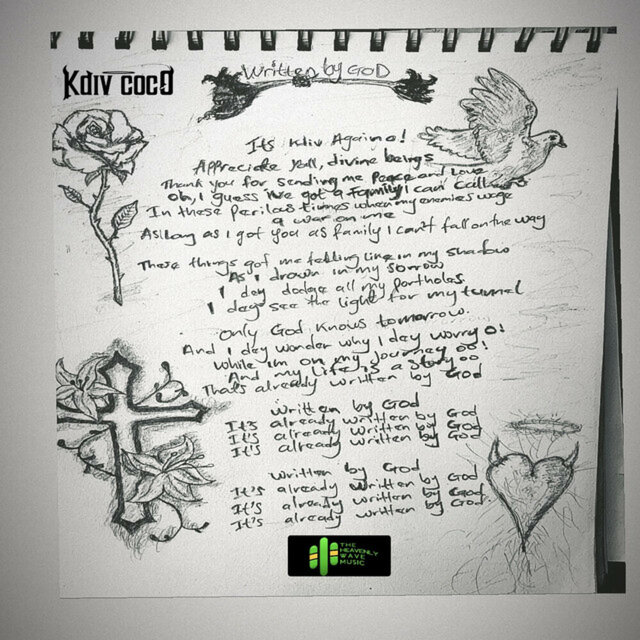 Kdiv cocO
Written by GOD
Its Kdiv Again o!
Appreciate yall, divine beings
Thank you for sending me Peace and Love
Oh, I guess i've got a Family I can call
In these perilos times when my enemies wage
a war on me
As long as I got you as family I can't fall on the way
These things got me feeling like in my shadow
As I drown in my sorrow
I dey dodge all my portholes
I dey see the light for my tunnel
Only God knows tomorrow.
And I dey wonder why I dey worry o!
While im on my journey oo!
And my life is a story oo
That's already written by God
Written by God
It's already written by God
It's already written by God
It's already written by God
Written by God
It's already written by God
It's already written by God
It's already written by God
THE
HEAVENLY
WAVE
MUSIC